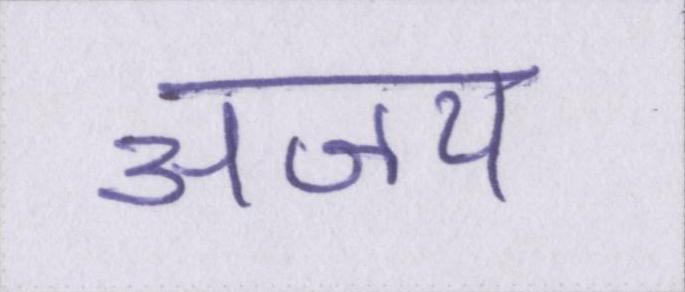 अजय